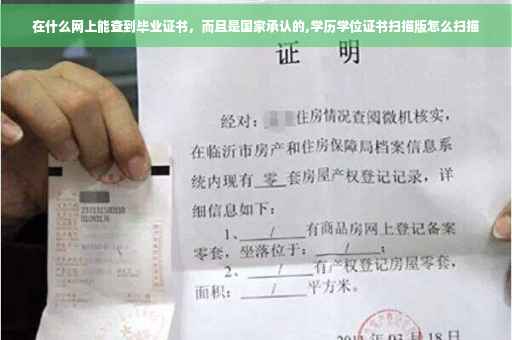 在什么网上能查到毕业证书，而且是国家承认的,学历学位证书扫描版怎么扫描
证 明
经对：住房情况查阅微机核实，
在临沂市房产和住房保障局档案信息系
统内现有 零 套房屋产权登记记录，详
细信息如下：
1、 / 有商品房网上登记备案
零套，坐落位于： / ；
2、 / 有产权登记房屋零套，
面积： / 平方米。
月 18 日